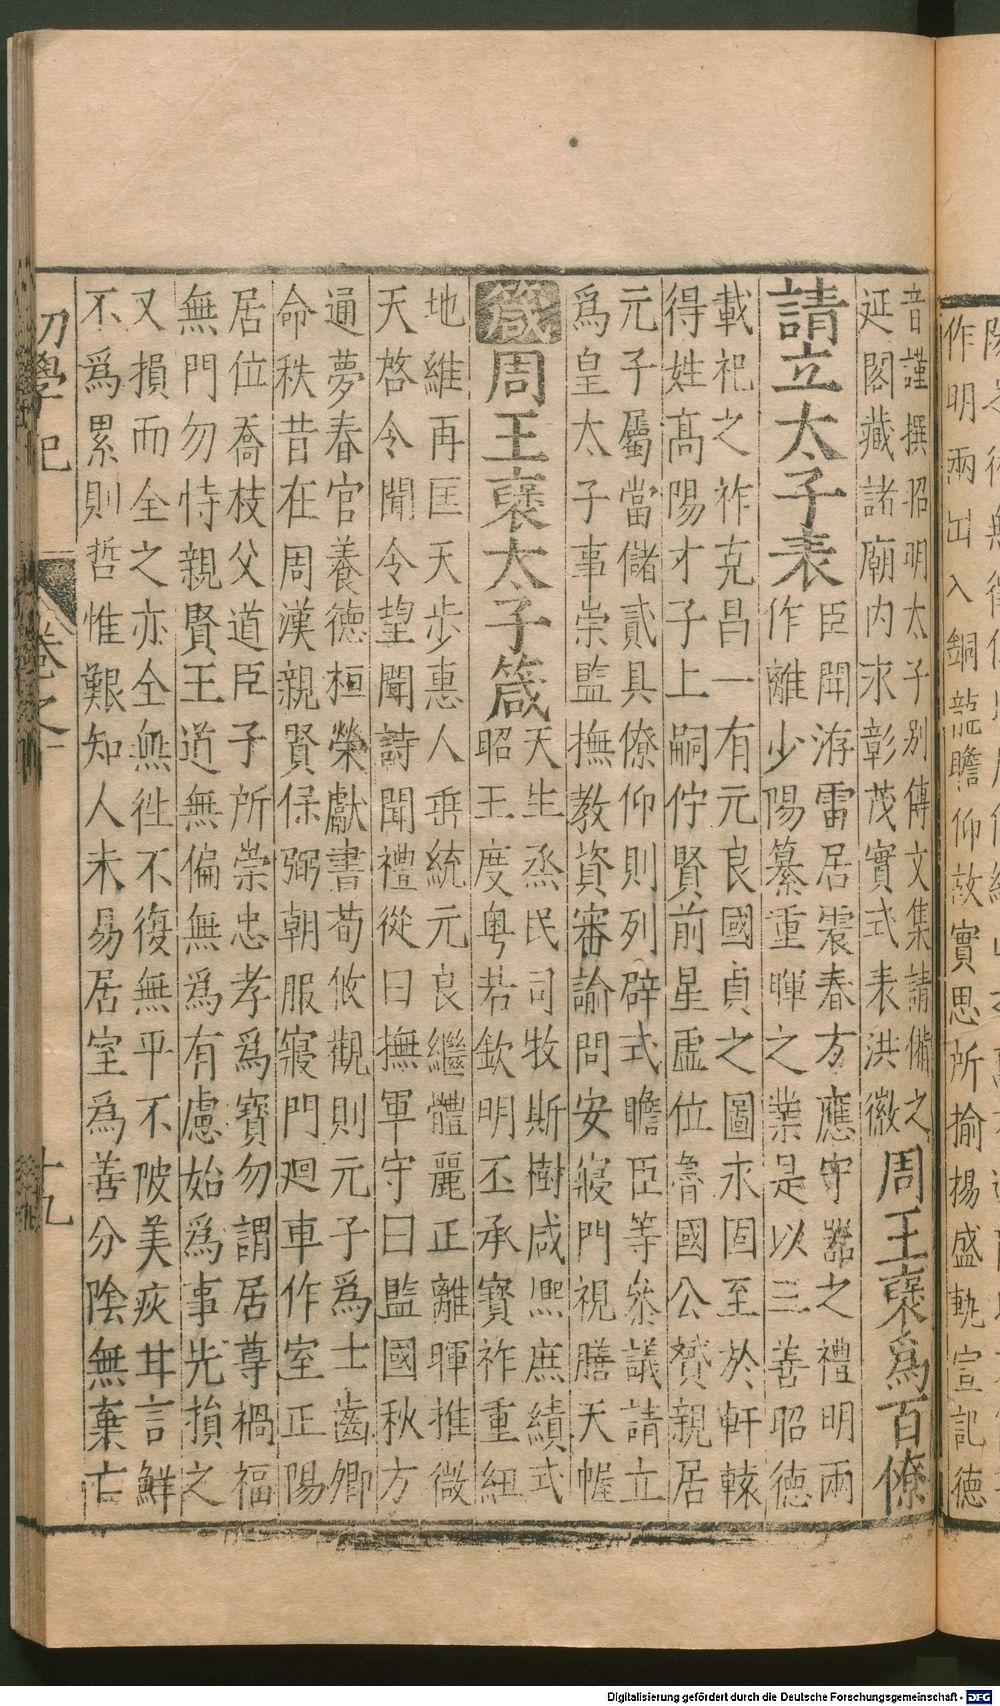 作明兩出入銅龍瞻仰故實思所揄揚盛軌宣記德
音謹撰昭明太子別傳文集請備之
延閣藏諸廟内永彰茂實式表洪徽
周王褒爲百僚
請立太子表
臣聞洊雷居震春方應守器之禮明兩
作離少陽纂重暉之業是以三善昭德
載祀之祚克昌一有元良國貞之圖永固至於軒轅
得姓髙陽才子上嗣佇賢前星虛位魯國公贇親居
元子屬當儲貳具僚仰則列辟式瞻臣等叅議請立
爲皇太子事崇監撫教資審諭問安寢門視膳天幄
箴
周王褒太子箴
天生烝民司牧斯樹咸熈庶績式
昭王度粤若欽明丕承寳祚重紐
地維再匡天步惠人垂統元良繼體麗正離暉推微
天啓令聞令望聞詩聞禮從曰撫軍守曰監國秋方
通夢春官養德桓榮獻書荀攸觀則元子爲士齒卿
命秩昔在周漢親賢保弼朝服寢門廻車作室正陽
居位喬枝父道臣子所崇忠孝爲寳勿謂居尊禍福
無門勿恃親賢王道無偏無爲有慮始爲事先損之
又損而全之亦全無徃不復無平不陂美疢甘言鮮
不爲累則哲惟艱知人未易居室爲善分陰無棄亡
初學記
卷之十
十九
Digitalisierung gefördert durch die Deutsche Forschungsgemeinschaft - DFG